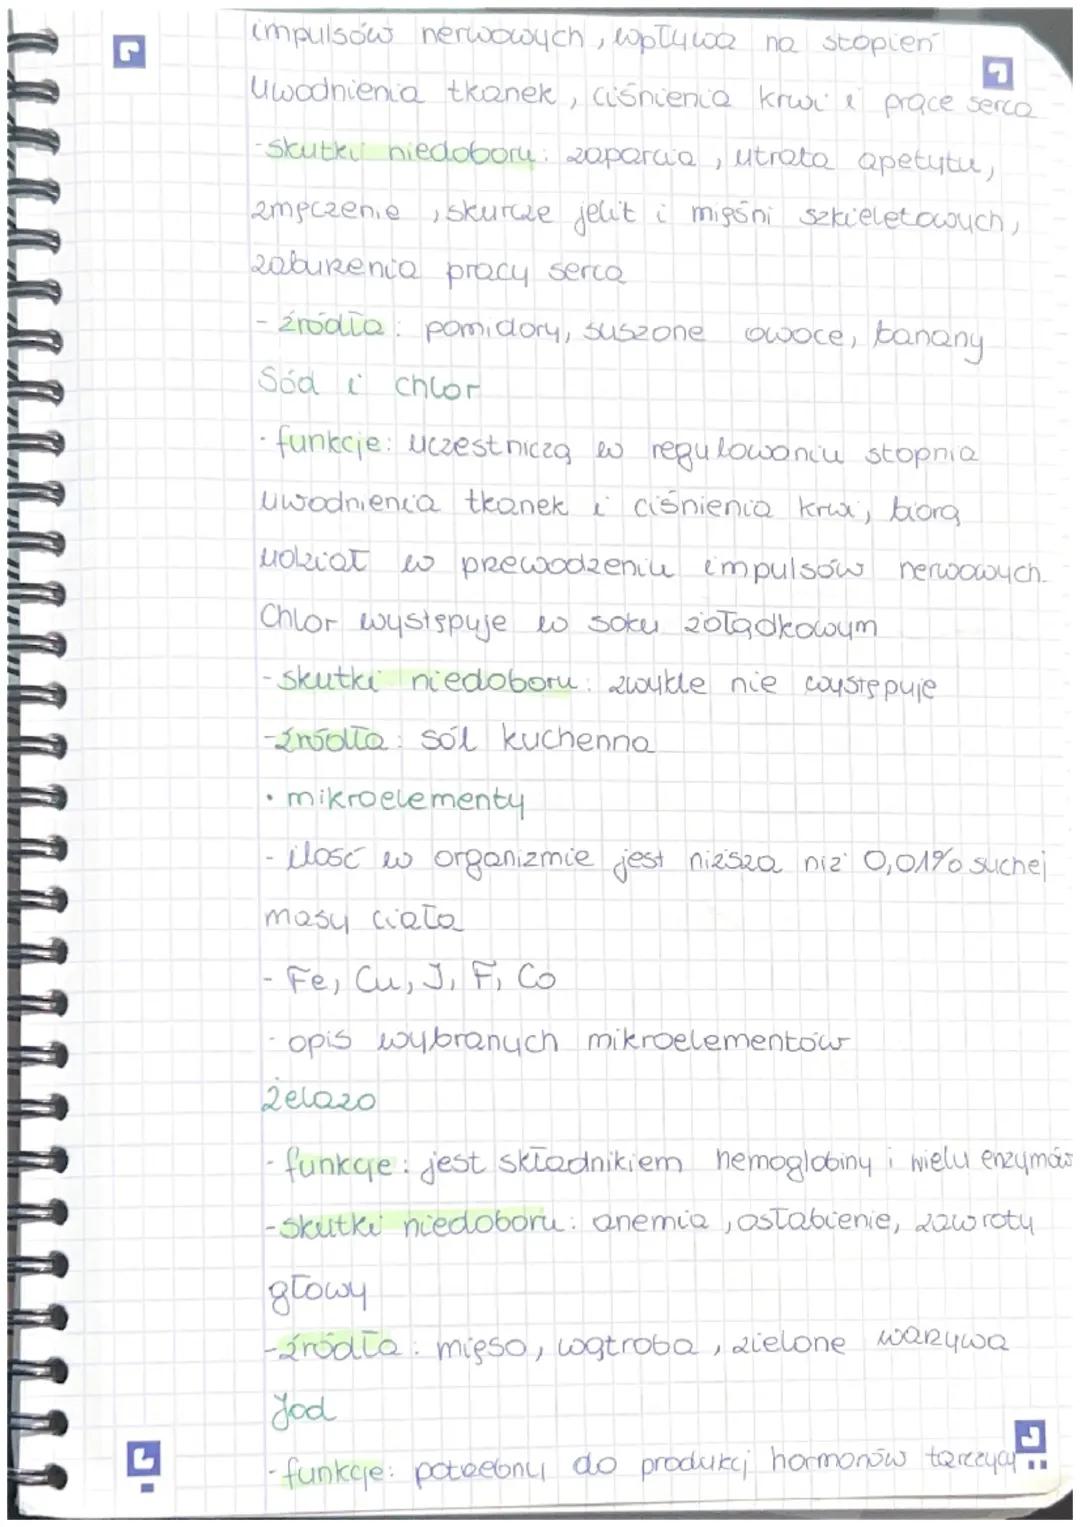 impulsów nerwowych, wpływa na stopień
uwodnienia tkanek, ciśnienia krwi i pracę serca
-skutki niedoboru: zaparcia, utrata apetytu,
zmęczenie, skurcze jelit i mięśni szkieletowych,
zaburzenia pracy serca
- źródła: pomidory, suszone owoce, banany
Sód i chlor
- funkcje: uczestniczą w regulowaniu stopnia
uwodnienia tkanek i ciśnienia krwi, biorą
udział w przewodzeniu impulsów nerwowych.
Chlor występuje w soku żołądkowym
-skutki niedoboru: zwykle nie występuje
-źródła: sól kuchenna
• mikroelementy
- ilość w organizmie jest niższa niż 0,01% suchej
masy ciała
- Fe, Cu, J, F, Co
- opis wybranych mikroelementów
żelazo
- funkcje: jest składnikiem hemoglobiny i wielu enzymów
-skutki niedoboru: anemia, osłabienie, zawroty
głowy
-źródła: mięso, wątroba, zielone warzywa
Jod
- funkcje: potrzebny do produkcj hormonów tarczycy